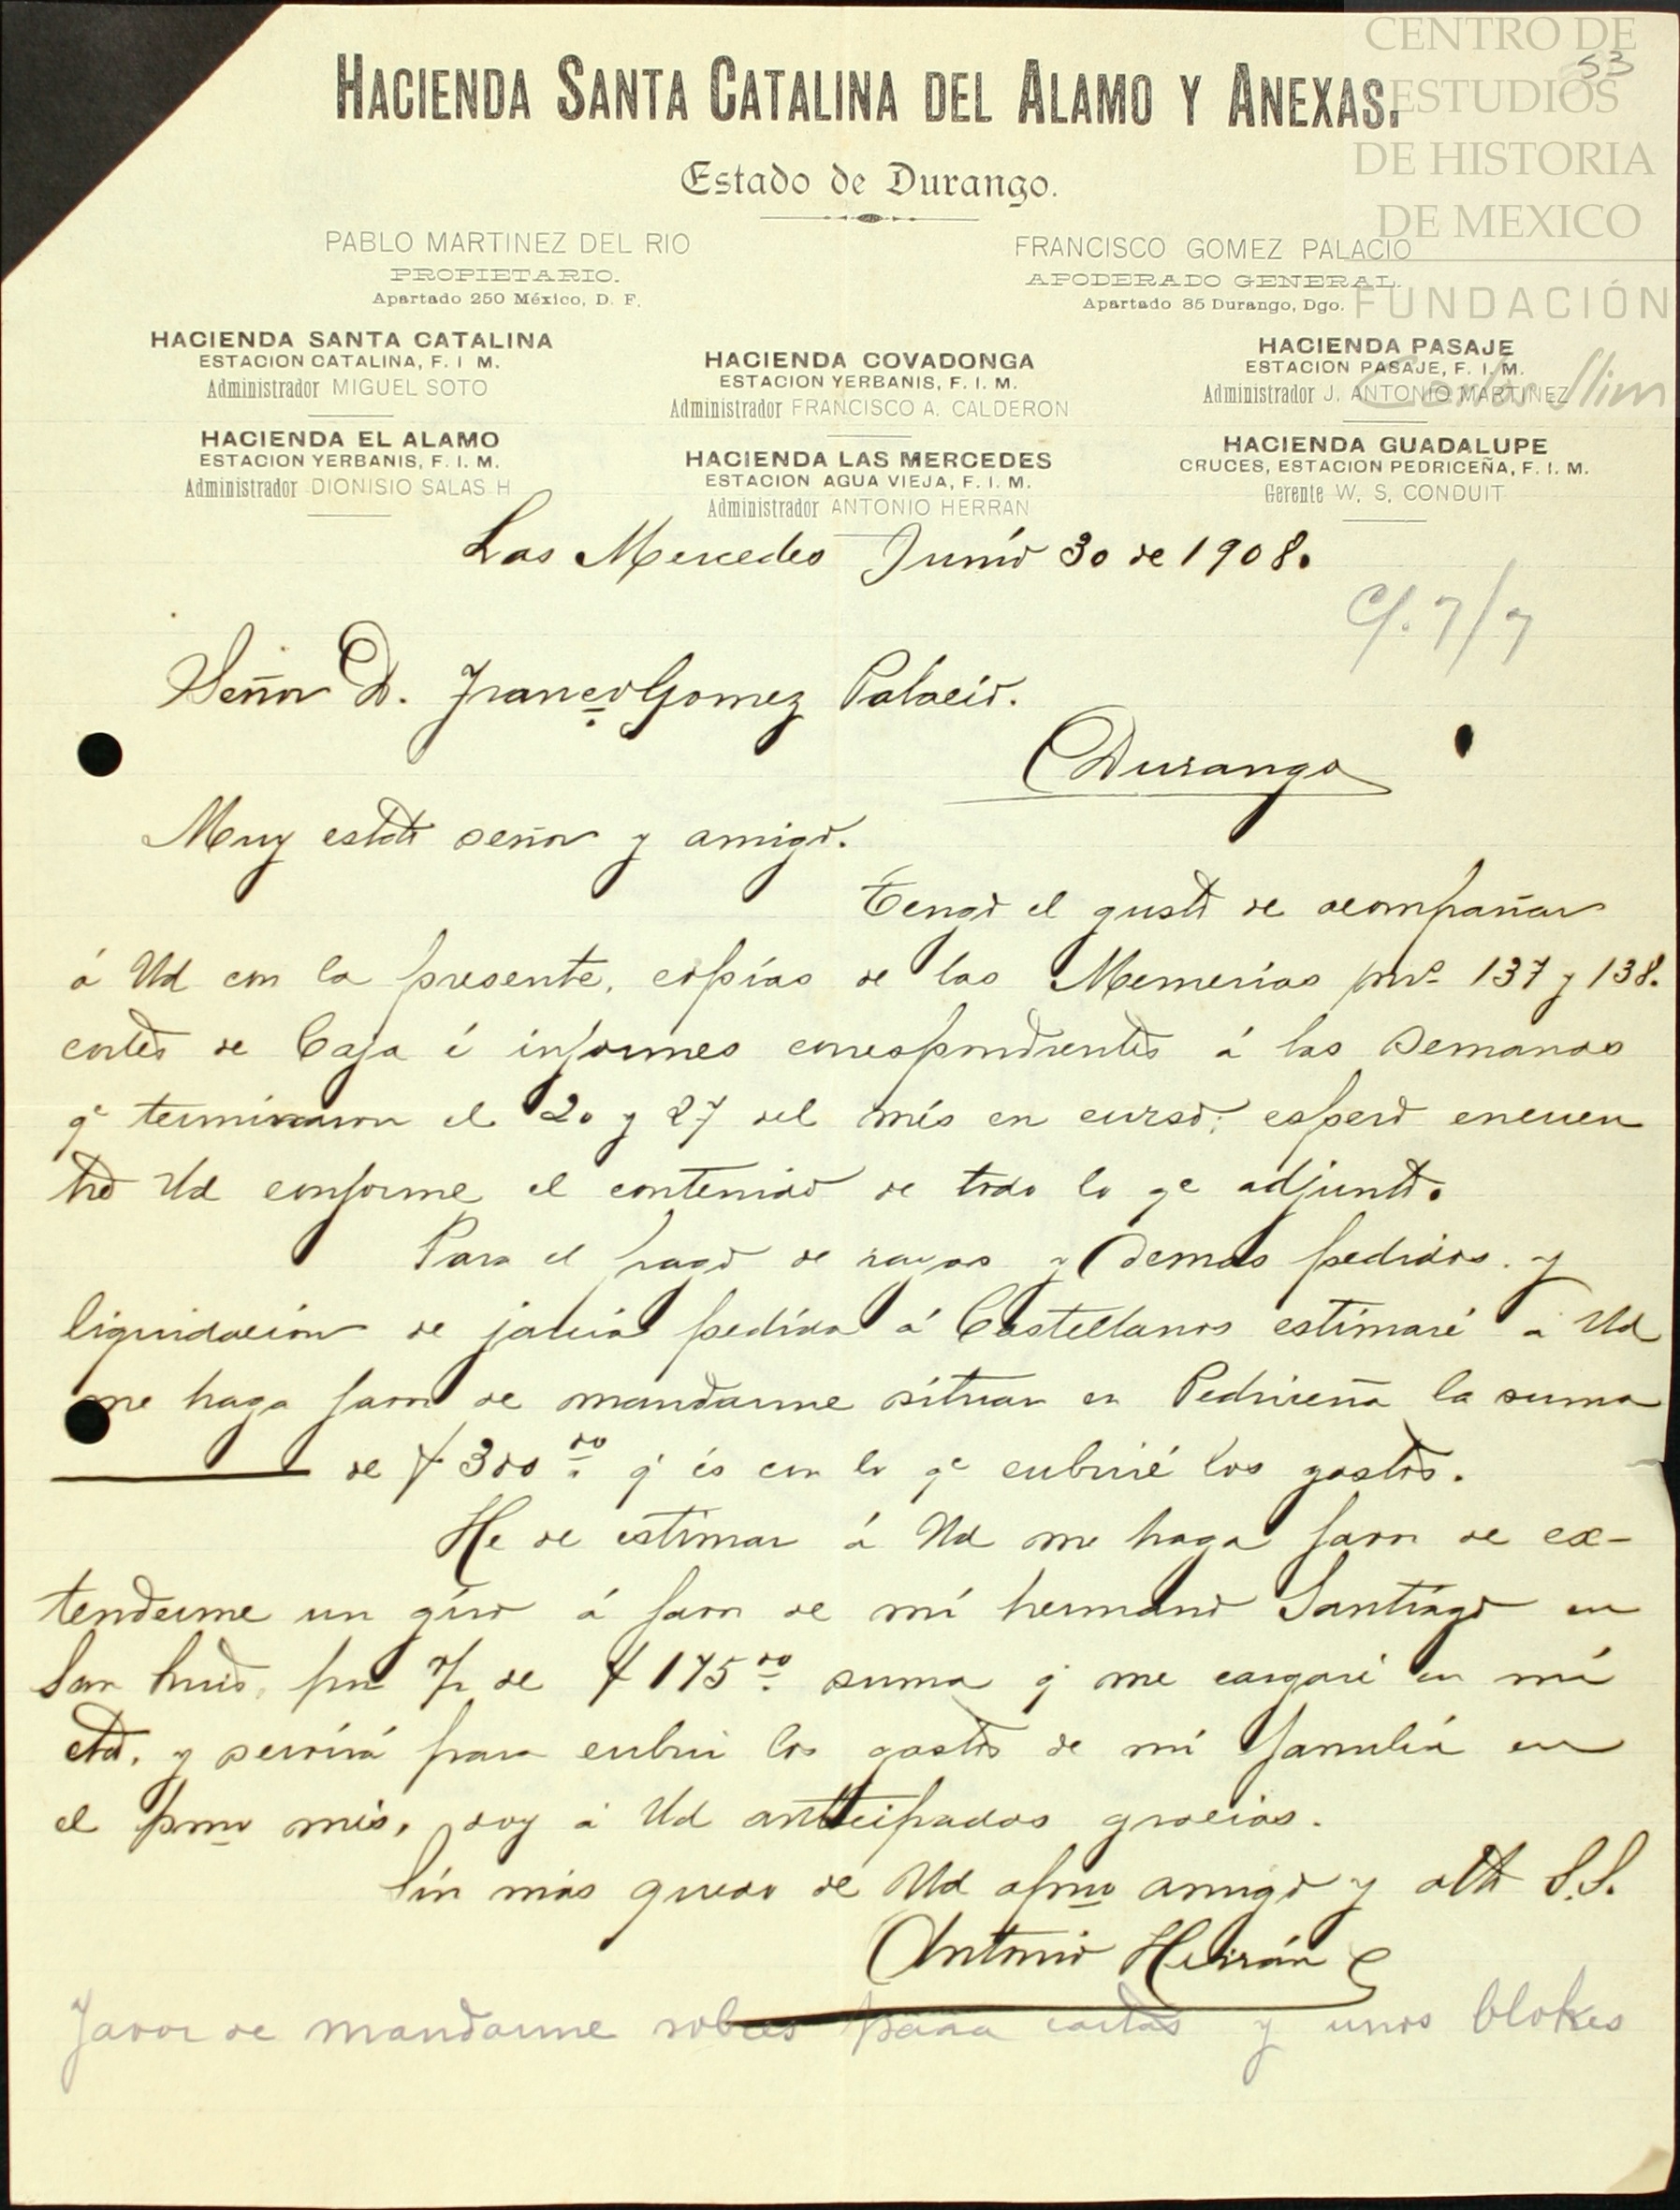 CENTRO DE
ESTUDIOS
DE HISTORIA
DE MEXICO
FUNDACIÓN
Carlos Slim
53
HACIENDA SANTA CATALINA DEL ALAMO Y ANEXAS.
Estado de Durango.
PABLO MARTINEZ DEL RIO
PROPIETARIO.
Apartado 250 México, D. F.
FRANCISCO GOMEZ PALACIO
APODERADO GENERAL.
Apartado 85 Durango, Dgo.
HACIENDA SANTA CATALINA
ESTACION CATALINA, F. I M.
Administrador MIGUEL SOTO
HACIENDA EL ALAMO
ESTACION YERBANIS, F. I. M.
Administrador DIONISIO SALAS H
HACIENDA COVADONGA
ESTACION YERBANIS, F. I. M.
Administrador FRANCISCO A. CALDERON
HACIENDA LAS MERCEDES
ESTACION AGUA VIEJA, F. I. M.
Administrador ANTONIO HERRAN
HACIENDA PASAJE
ESTACION PASAJE, F. I. M.
Administrador J. ANTONIO MARTINEZ
HACIENDA GUADALUPE
CRUCES, ESTACION PEDRICEÑA, F. I. M.
Gerente W. S. CONDUIT
Las Mercedes Junio 30 de 1908.
C/. 7/7
Señor D. Franco Gomez Palacio.
Durango
Muy estdo señor y amigo.
Tengo el gusto de acompañar
á Ud con la presente, copias de las Memorias 137 y 138.
cortes de Caja é informes correspondientes á las Semanas
qe terminaron el 20 y 27 del més en curso; espero encuen
tre Ud conforme el contenido de todo lo qe adjunto.
Para el pago de rayas y demas pedidos. y
liquidacion de jarcia pedida á Castellanos estimaré á Ud
me haga favor de mandarme situar en Pedriceña la suma
de $ 300 00 q' és con lo qe cubriré los gastos.
He de estimar á Ud me haga favor de ex-
tenderme un giro á favor de mi hermano Santiago en
San Luis, por de $ 175 00 suma q' me cargaré en mi
cta. y servirá para cubrir los gastos de mi familia en
el pmo més, doy á Ud anticipadas gracias.
Sin más quedo de Ud afmo amigo y atto S.S.
Antonio Herrán
Favor de mandarme sobres para cartas y unos blokes